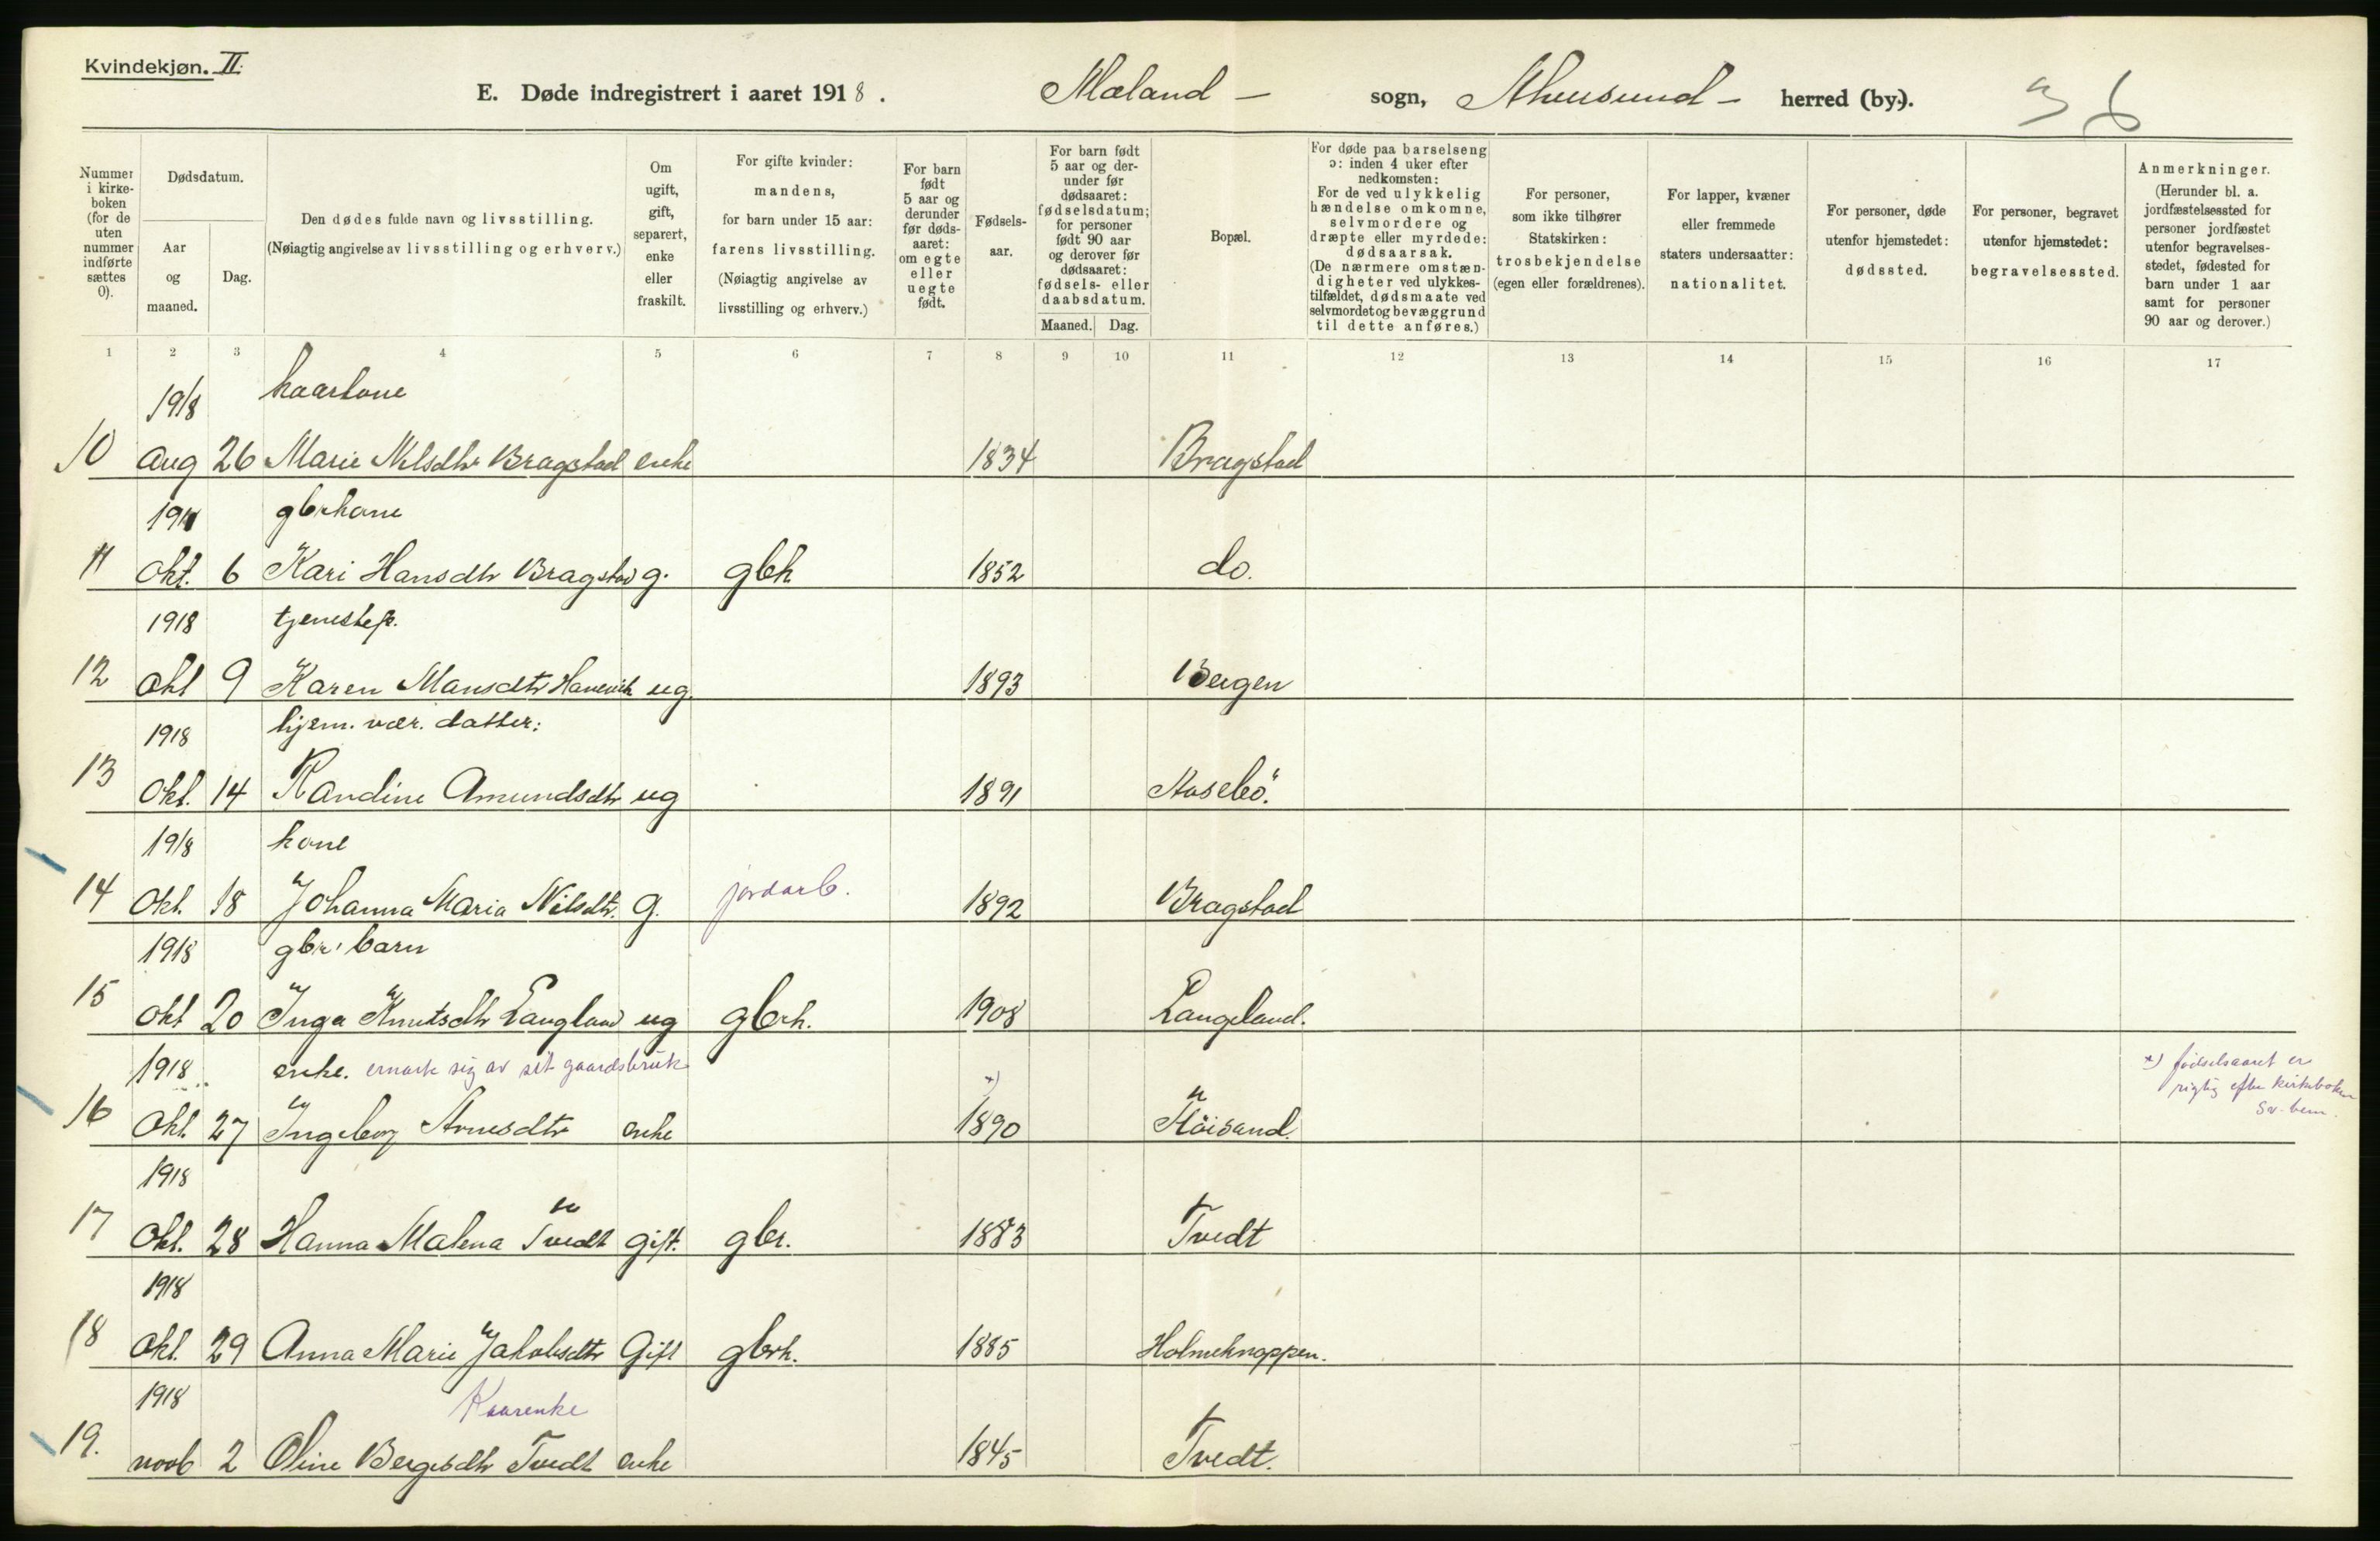 Kvindekjøn. II.
E. Døde indregistrert i aaret 1918. Mæland - sogn, herred (by).
36
Nummer i kirkeboken (for de uten nummer indførte sættes 0).
Dødsdatum.
Aar og maaned.
Dag.
Den dødes fulde navn og livsstilling.
(Nøiagtig angivelse av livsstilling og erhverv.)
Om ugift, gift, separert, enke eller fraskilt.
For gifte kvinder: mandens, for barn under 15 aar: farens livsstilling. (Nøiagtig angivelse av livsstilling og erhverv.)
For barn født 5 aar og derunder før dødsaaret: om egte eller uegte født.
Fødselsaar.
For barn født 5 aar og derunder før dødsaaret: fødselsdatum; for personer født 90 aar og derover før dødsaaret: fødsels- eller daabsdatum.
Maaned. Dag.
Bopæl.
For døde paa barselseng ɔ: inden 4 uker efter nedkomsten: For de ved ulykkelig hændelse omkomne, selvmordere og dræpte eller myrdede: dødsaarsak. (De nærmere omstændigheter ved ulykkestilfældet, dødsmaate ved selvmordet og bevæggrund til dette anføres.)
For personer, som ikke tilhører Statskirken: trosbekjendelse (egen eller forældrenes).
For lapper, kvæner eller fremmede staters undersaatter: nationalitet.
For personer, døde utenfor hjemstedet: dødssted.
For personer, begravet utenfor hjemstedet: begravelsessted.
Anmerkninger. (Herunder bl. a. jordfæstelsessted for personer jordfæstet utenfor begravelsesstedet, fødested for barn under 1 aar samt for personer 90 aar og derover.)
1 2 3 4 5 6 7 8 9 10 11 12 13 14 15 16 17
1918
10 Aug 26 Marie Nilsdtr Bragstad enke 1834 Bragstad
gbrkone
11 Okt. 6 Kari Hansdtr Bragstad g. gbh 1852 do.
1918 tjenestep.
12 Okt 9 Karen Mansdtr Hanevik ug. 1893 Bergen
1918 hjem. vær. datter:
13 Okt. 14 Randine Amundsdtr ug 1891
1918 kone
14 Okt. 18 Johanna Maria Nilsdtr. g. jordarb. 1892 Bragstad
1918 gbr. barn
15 Okt 20 Inga Knutsdtr Langland ug gbrh. 1908 Langeland.
1918 enke. ernærte sig av sit gaardsbruk
16 Okt. 27 Ingeborg Arnesdtr enke x) 1890 Høisand. x) fødselsaaret er
rigtig efter kirkeboken
1918
17 Okt. 28 Hanna Malena Tvedt gift. gbr. 1883 Tvedt
1918
18 Okt. 29 Anna Marie Jakobsdtr Gift gbrh. 1885 Holmeknappen.
1918 Kaarenke
19. novb 2 Oline Bergesdtr Tvedt enke 1845 Tvedt.